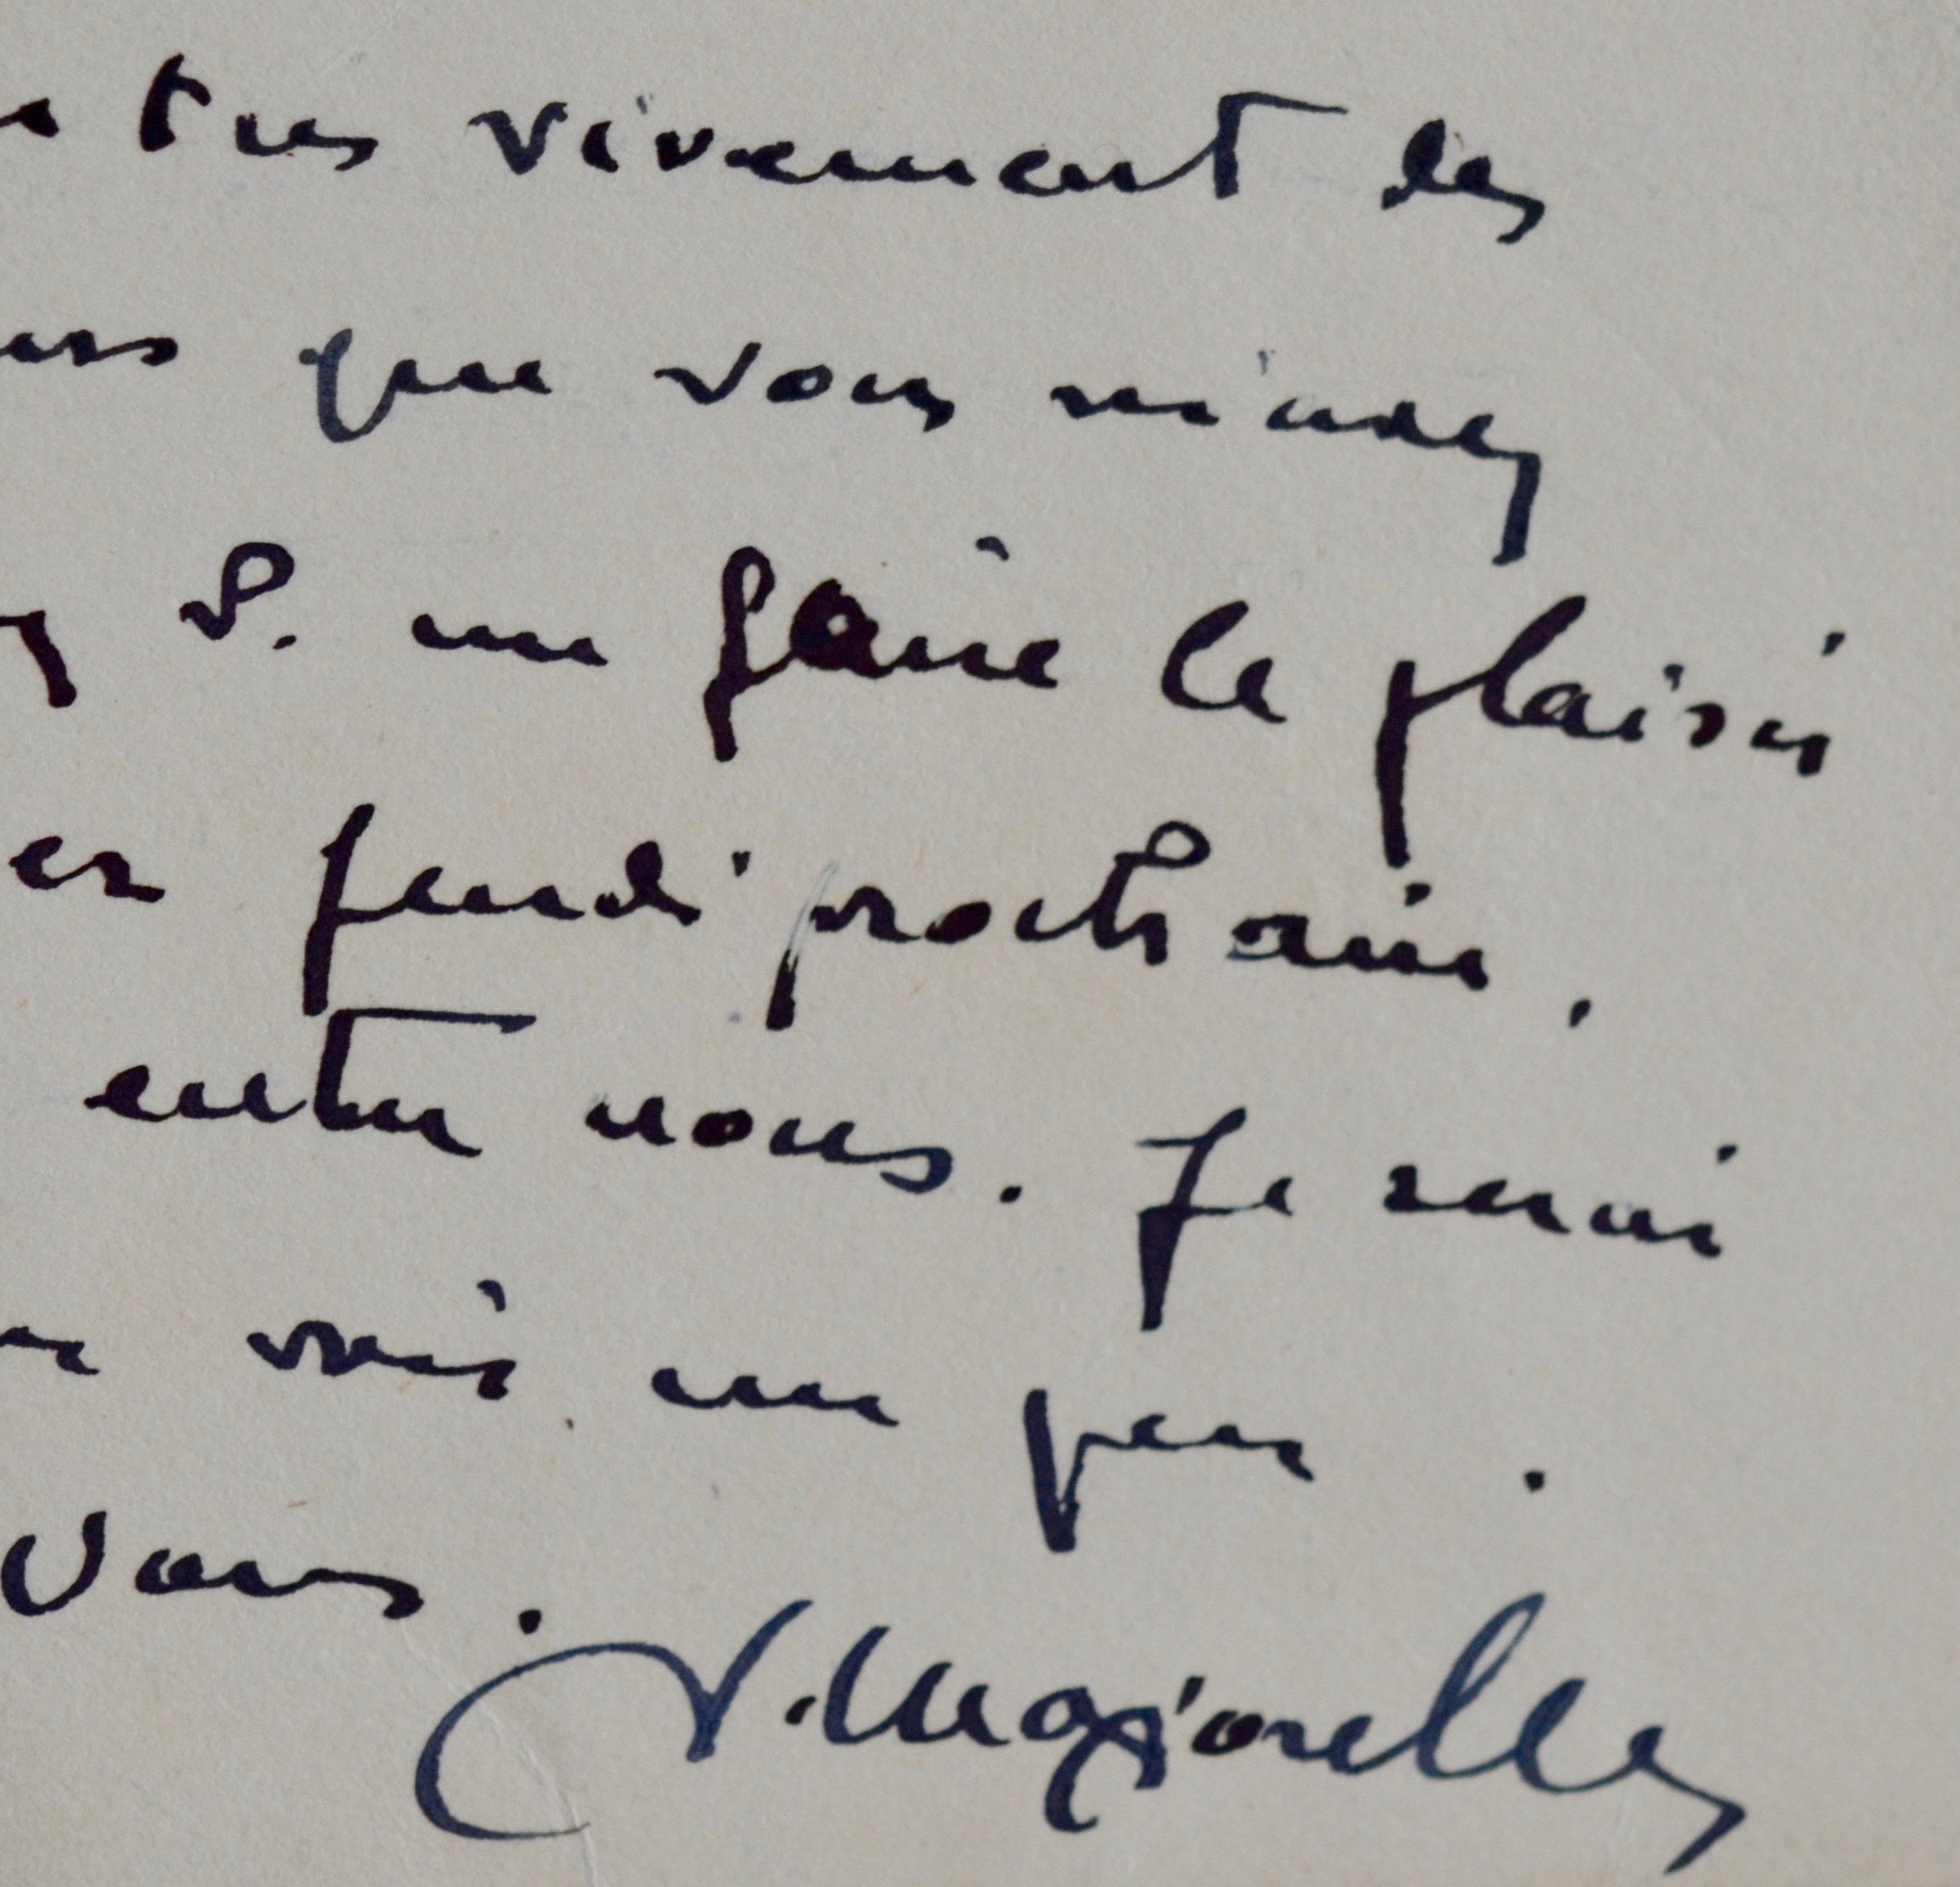 très vivement des
que vous m'avez
S. me faire le plaisir
jeudi prochain,
entre nous. Je serai
voir un peu.
Vous. J. Majorelle